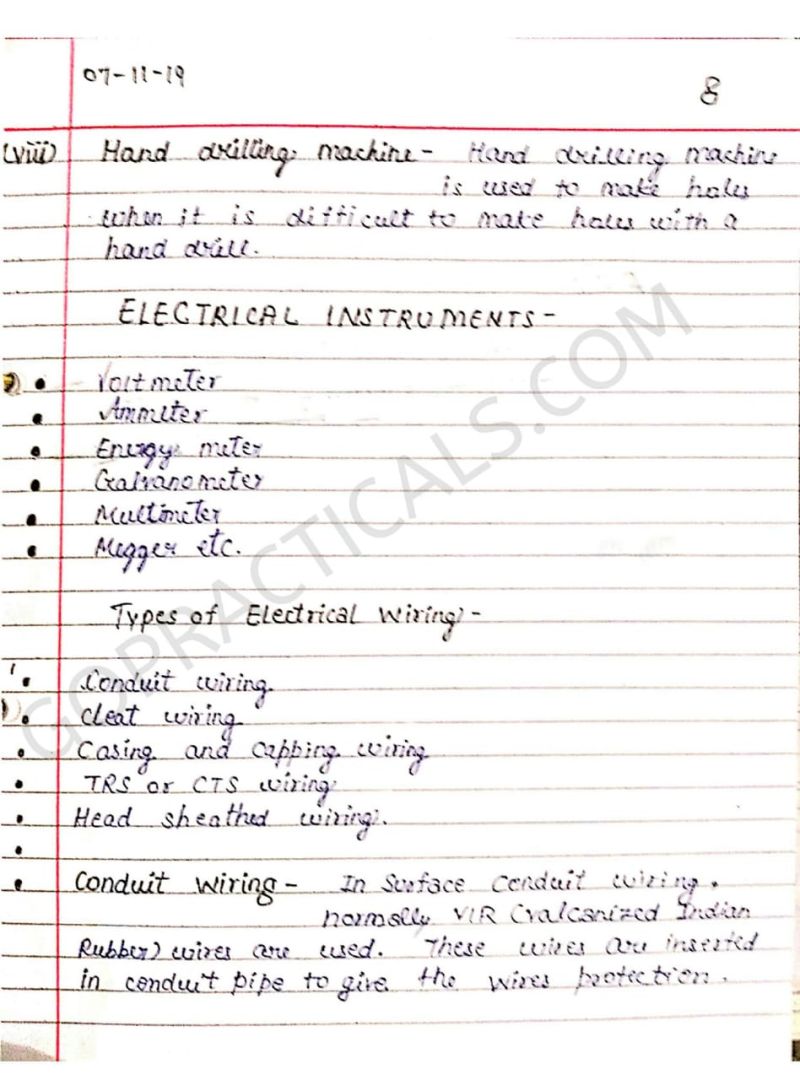 07-11-19
8
(viii) Hand drilling machine - Hand drilling machine
is used to make holes
when it is difficult to make holes with a
hand drill.
ELECTRICAL INSTRUMENTS -
• Voltmeter
• Ammeter
• Energy meter
• Galvanometer
• Multimeter
• Megger etc.
Types of Electrical Wiring -
• Conduit wiring
• Cleat wiring
• Casing and capping wiring
• TRS or CTS wiring
• Head sheathed wiring.
•
• Conduit Wiring - In Surface Conduit wiring,
normally VIR (valcanized Indian
Rubber) wires are used. These wires are inserted
in conduit pipe to give the wires protection.
GOPRACTICALS.COM